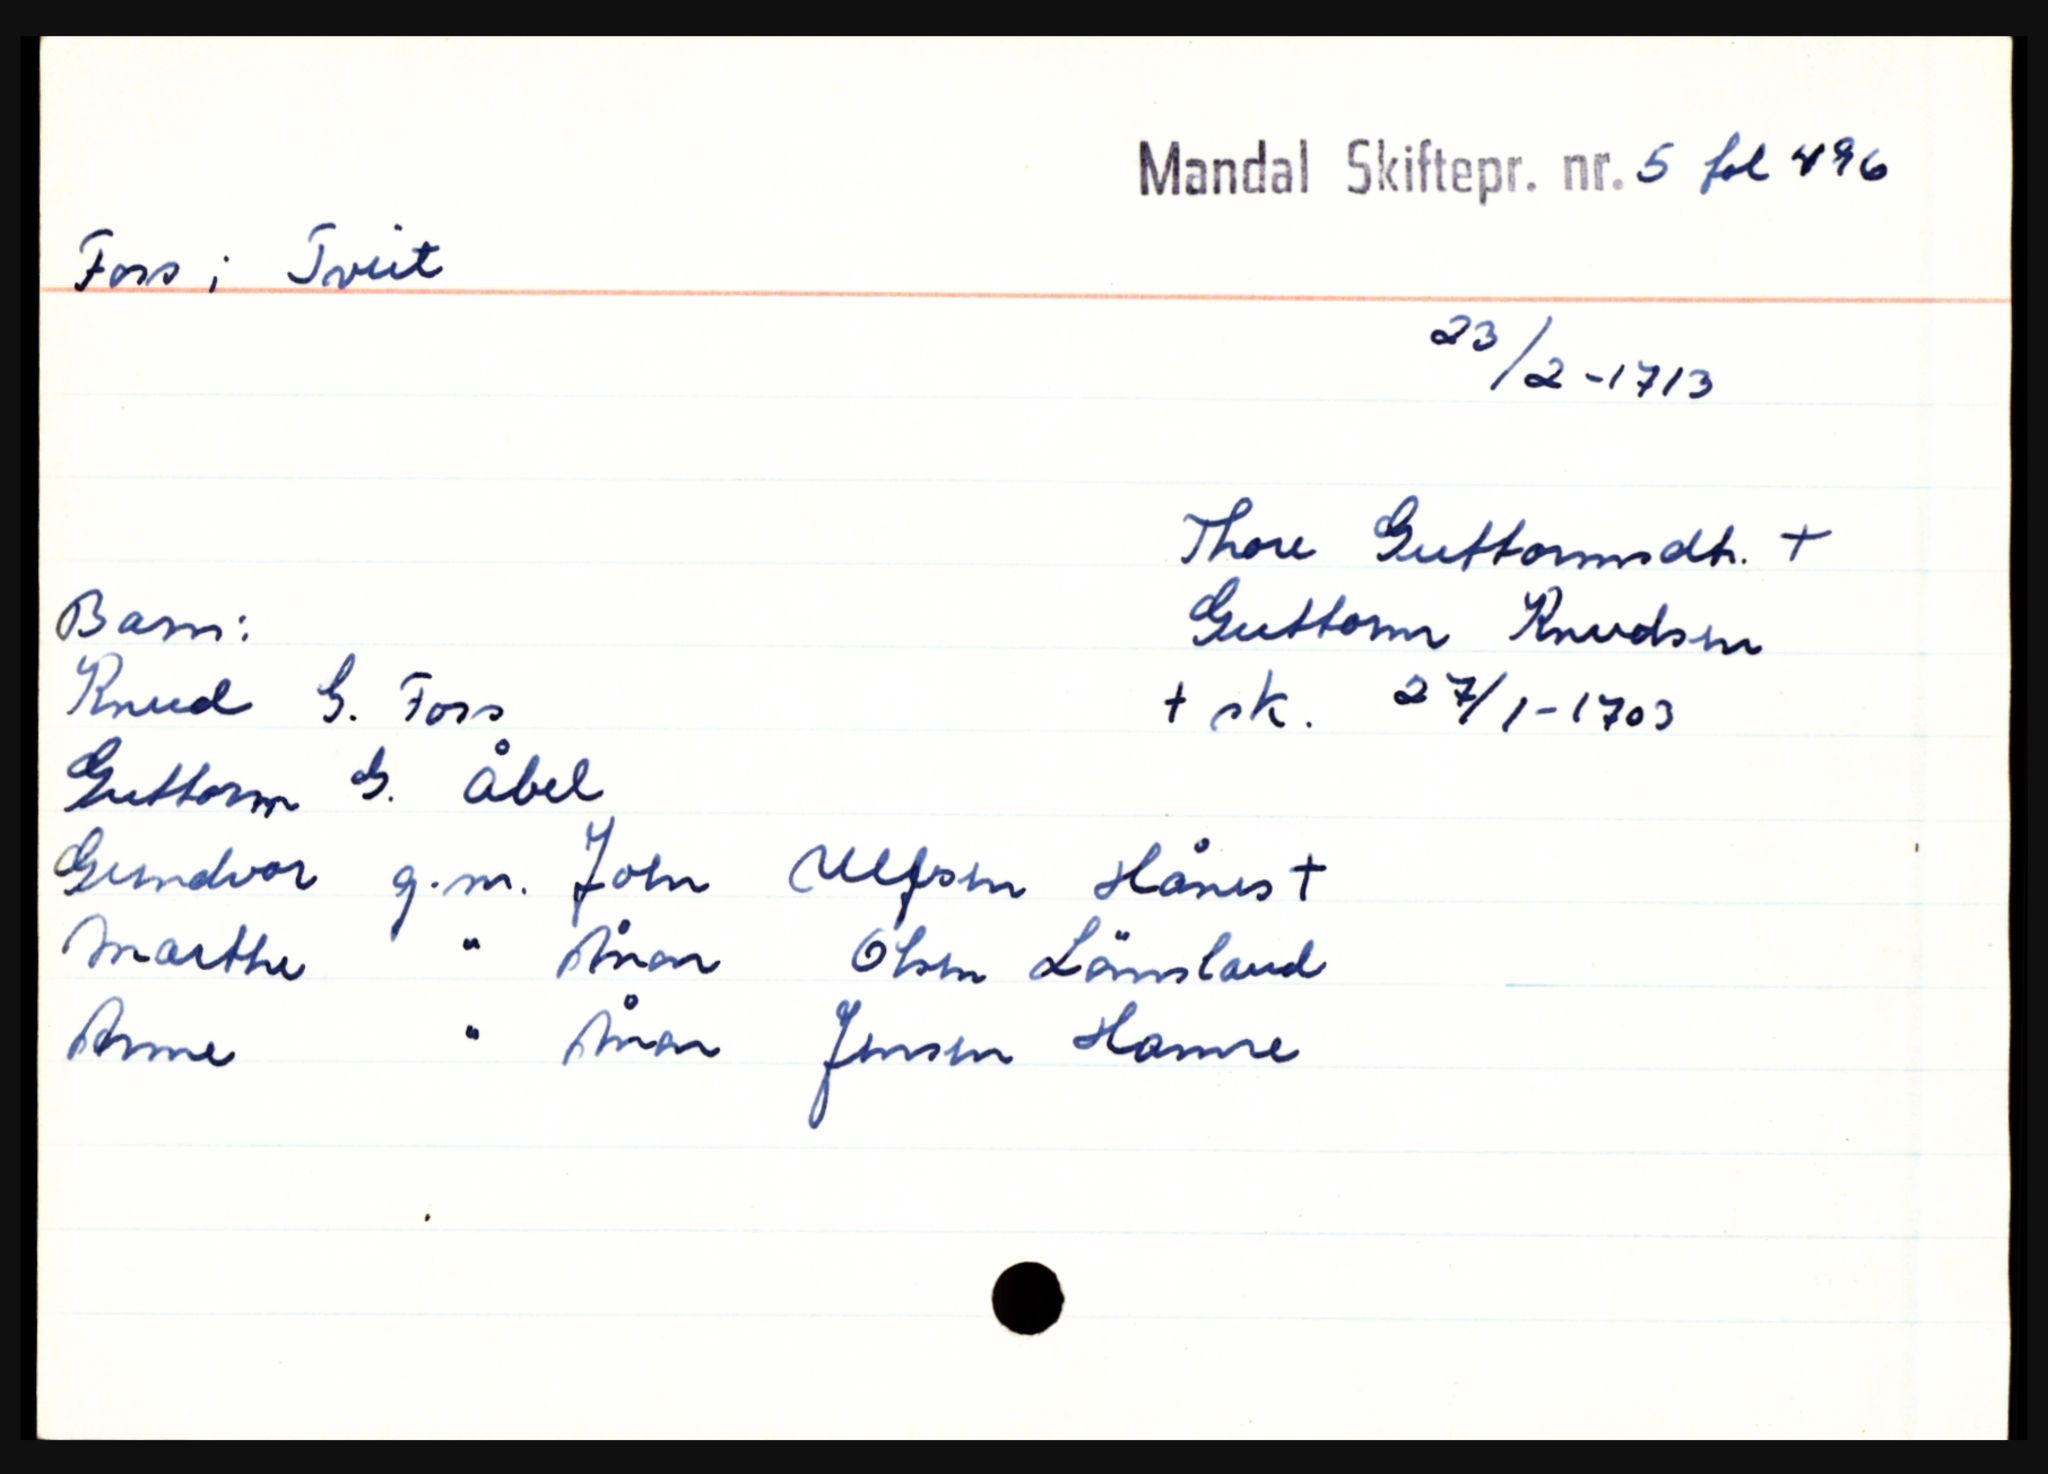 Mandal Skiftepr. nr. 5 fol 496
Foss i Tveit
23/2-1713
Thore Guttormsdtr. +
Barn:
Guttorm Knudsen
Knud G. Foss
+ sk. 27/1-1703
Guttorm G. Åbel
Gundvor g.m. John Ulfsen Hånes +
Marthe " Ånon Olsen Lömsland
Anne " Ånon Jensen Hamre